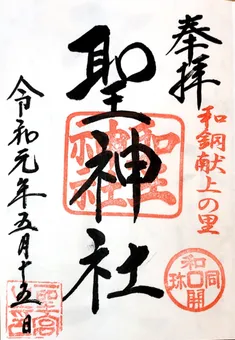 奉拝
和銅献上の里
聖神社
聖神社
和同開珎
令和元年五月十五日